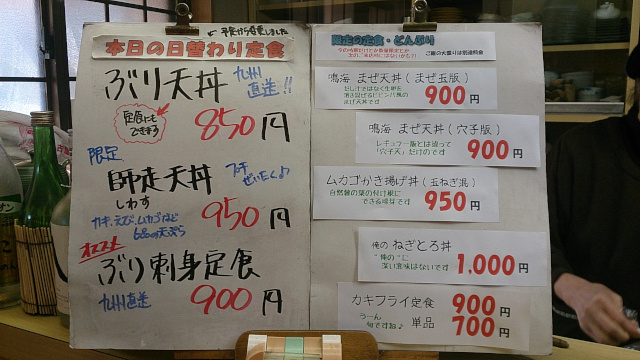 本日の日替わり定食
ぶり天丼 九州
直送!!
定食にも
できます
850円
限定
師走天丼 プチ
ぜいたく♪
しわす
カキ、えび、ムカゴなど
6品の天ぷら
950円
オススメ
ぶり刺身定食
九州直送
900円
師走の定食・どんぶり
ご飯の大盛りは別途料金
鳴海 まぜ天丼(まぜ玉版)
まぜ天丼です
900円
鳴海 まぜ天丼(穴子版)
レギュラー版とは違って
「穴子天」だけのです
900円
ムカゴかき揚げ丼(玉ねぎ混)
自然薯の葉の付け根に
できる球芽です
950円
俺の ねぎとろ丼
"俺の"に
深い意味はないです
1,000円
カキフライ定食 900円
うーん
旬ですね♪
単品 700円